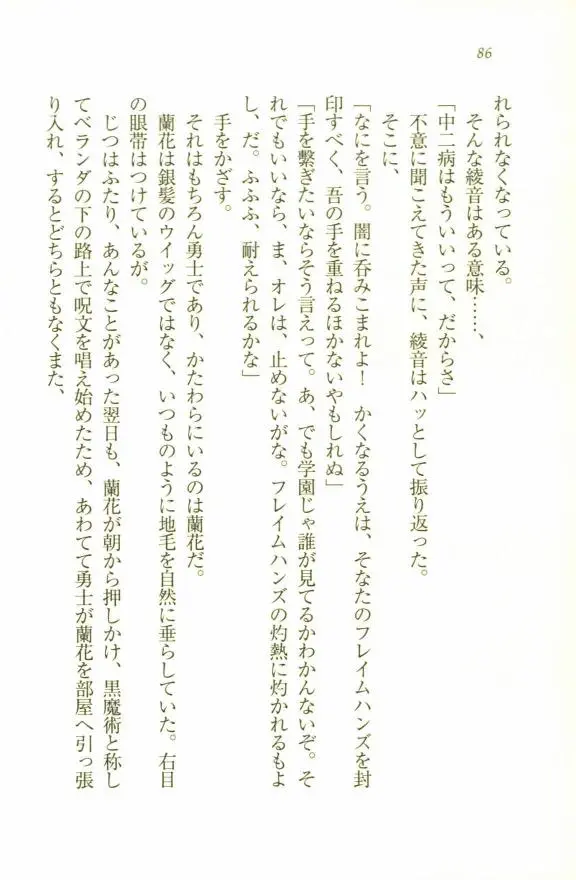 86
れられなくなっている。
そんな綾音はある意味……、
「中二病はもういいって、だからさ」
不意に聞こえてきた声に、綾音はハッとして振り返った。
そこに、
「なにを言う。闇に呑みこまれよ！　かくなるうえは、そなたのフレイムハンズを封
印すべく、吾の手を重ねるほかないやもしれぬ」
「手を繋ぎたいならそう言えって。あ、でも学園じゃ誰が見てるかわかんないぞ。そ
れでもいいなら、ま、オレは、止めないがな。フレイムハンズの灼熱に灼かれるもよ
し、だ。ふふふ、耐えられるかな」
手をかざす。
それはもちろん勇士であり、かたわらにいるのは蘭花だ。
蘭花は銀髪のウイッグではなく、いつものように地毛を自然に垂らしていた。右目
の眼帯はつけているが。
じつはふたり、あんなことがあった翌日も、蘭花が朝から押しかけ、黒魔術と称し
てベランダの下の路上で呪文を唱え始めたため、あわてて勇士が蘭花を部屋へ引っ張
り入れ、するとどちらともなくまた、